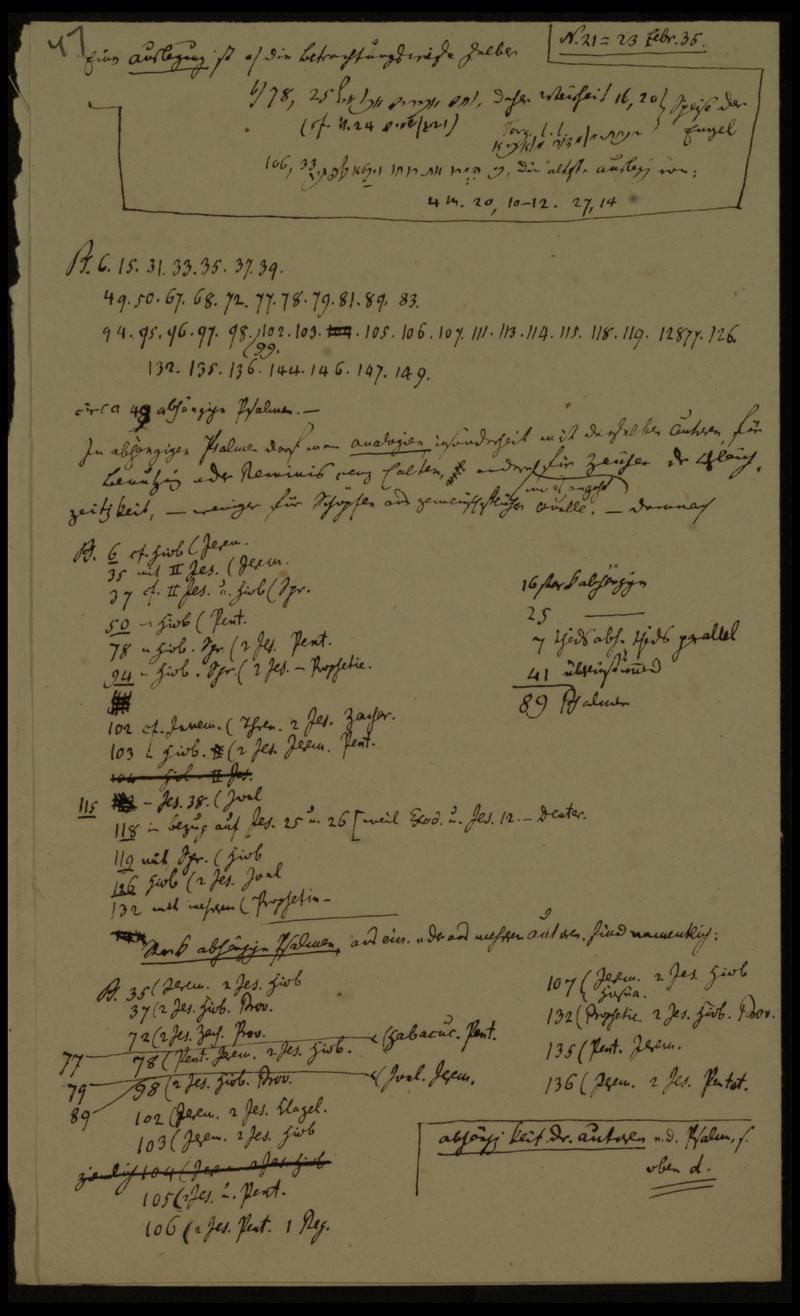 47
N. 21 = 23 Febr. 35.
Eine Auslegung ist die Betrachtungsweise selber
ψ 78, 25 לחם אבירים אכל איש, daher Weisheit 16, 20 } Speise der
Engel
106, 33 כי המרו את רוחו ויבטא בשפתיו, die älteste Auslegg von:
4 M. 20, 10-12. 27, 14
Ps. 6. 15. 31. 33. 35. 37. 39.
49. 50. 67. 68. 72. 77. 78. 79. 81. 89. 83.
94. 95. 96. 97. 98. 102. 103. 104. 105. 106. 107. 111. 113. 114. 115. 118. 119. 126.
99.
132. 135. 136. 144. 146. 147. 149.
circa 49 abhängige Psalmen. —
In abhängigen Psalmen darf man Analogien insonderheit mit denselben Autoren, für
Benutzg oder Reminiscenz halten, andere für Zeugen der Gleich-
wo es angeht
zeitigkeit, — weniger für Schöpfen aus gemeinschaftlicher Quelle. — Demnach
Ps. 6 cf. Hiob ( Jerem.
35 mit II Jes. ( Jerem.
37 cf. II Jes. u. Hiob ( Spr.
50 – Hiob ( Pent.
78 – Hiob. Spr. ( 2 Jes. Pent.
94 – Hiob. Spr. ( 2 Jes. – Prophetie.
102 cf. Jerem. ( Thren. 2 Jes. Zachar.
103 – Hiob. ( 2 Jes. Jerem. Pent.
104 – Hiob – II Jes.
115 – Jes. 38. ( Joel
118 in bezug auf Jes. 25 u. 26 [ weil Exod. u. Jes. 12. – Deuter.
119 mit Spr. ( Hiob
126 Hiob ( 2 Jes. Joel
132 mit mehren ( Prophetie –
16 stark abhängige
25 ———
7 theils abh. theils parallel
41 übereinstimmend
89 Psalmen
Stark abhängige Psalmen, aus ein. oder aus mehren Autoren, sind namentlich:
Ps. 35 ( Jerem. 2 Jes. Hiob
37 ( 2 Jes. Hiob. Prov.
72 ( 2 Jes. Zach. Prov.
77 ( Habacuc. Pent.
78 ( Pent. Jerem. 2 Jes. Hiob.
79 ( Joel. Jerem.
89
98 ( 2 Jes. Hiob. Prov.
102 ( Jerem. 2 Jes. Klagel.
103 ( Jerem. 2 Jes. Hiob
ziemlich 104 ( Jerem 2 Jes. Hiob
105 ( 2 Jes. u. Pent.
106 ( 2 Jes. Pent. 1 Reg.
107 ( Jerem. 2 Jes. Hiob
Hosea.
132 ( Prophetie. 2 Jes. Hiob. Prov.
135 ( Pent. Jerem.
136 ( Jerem. 2 Jes. Pentat.
abhängigkeit der Autoren v. d. Psalm, s.
oben d.